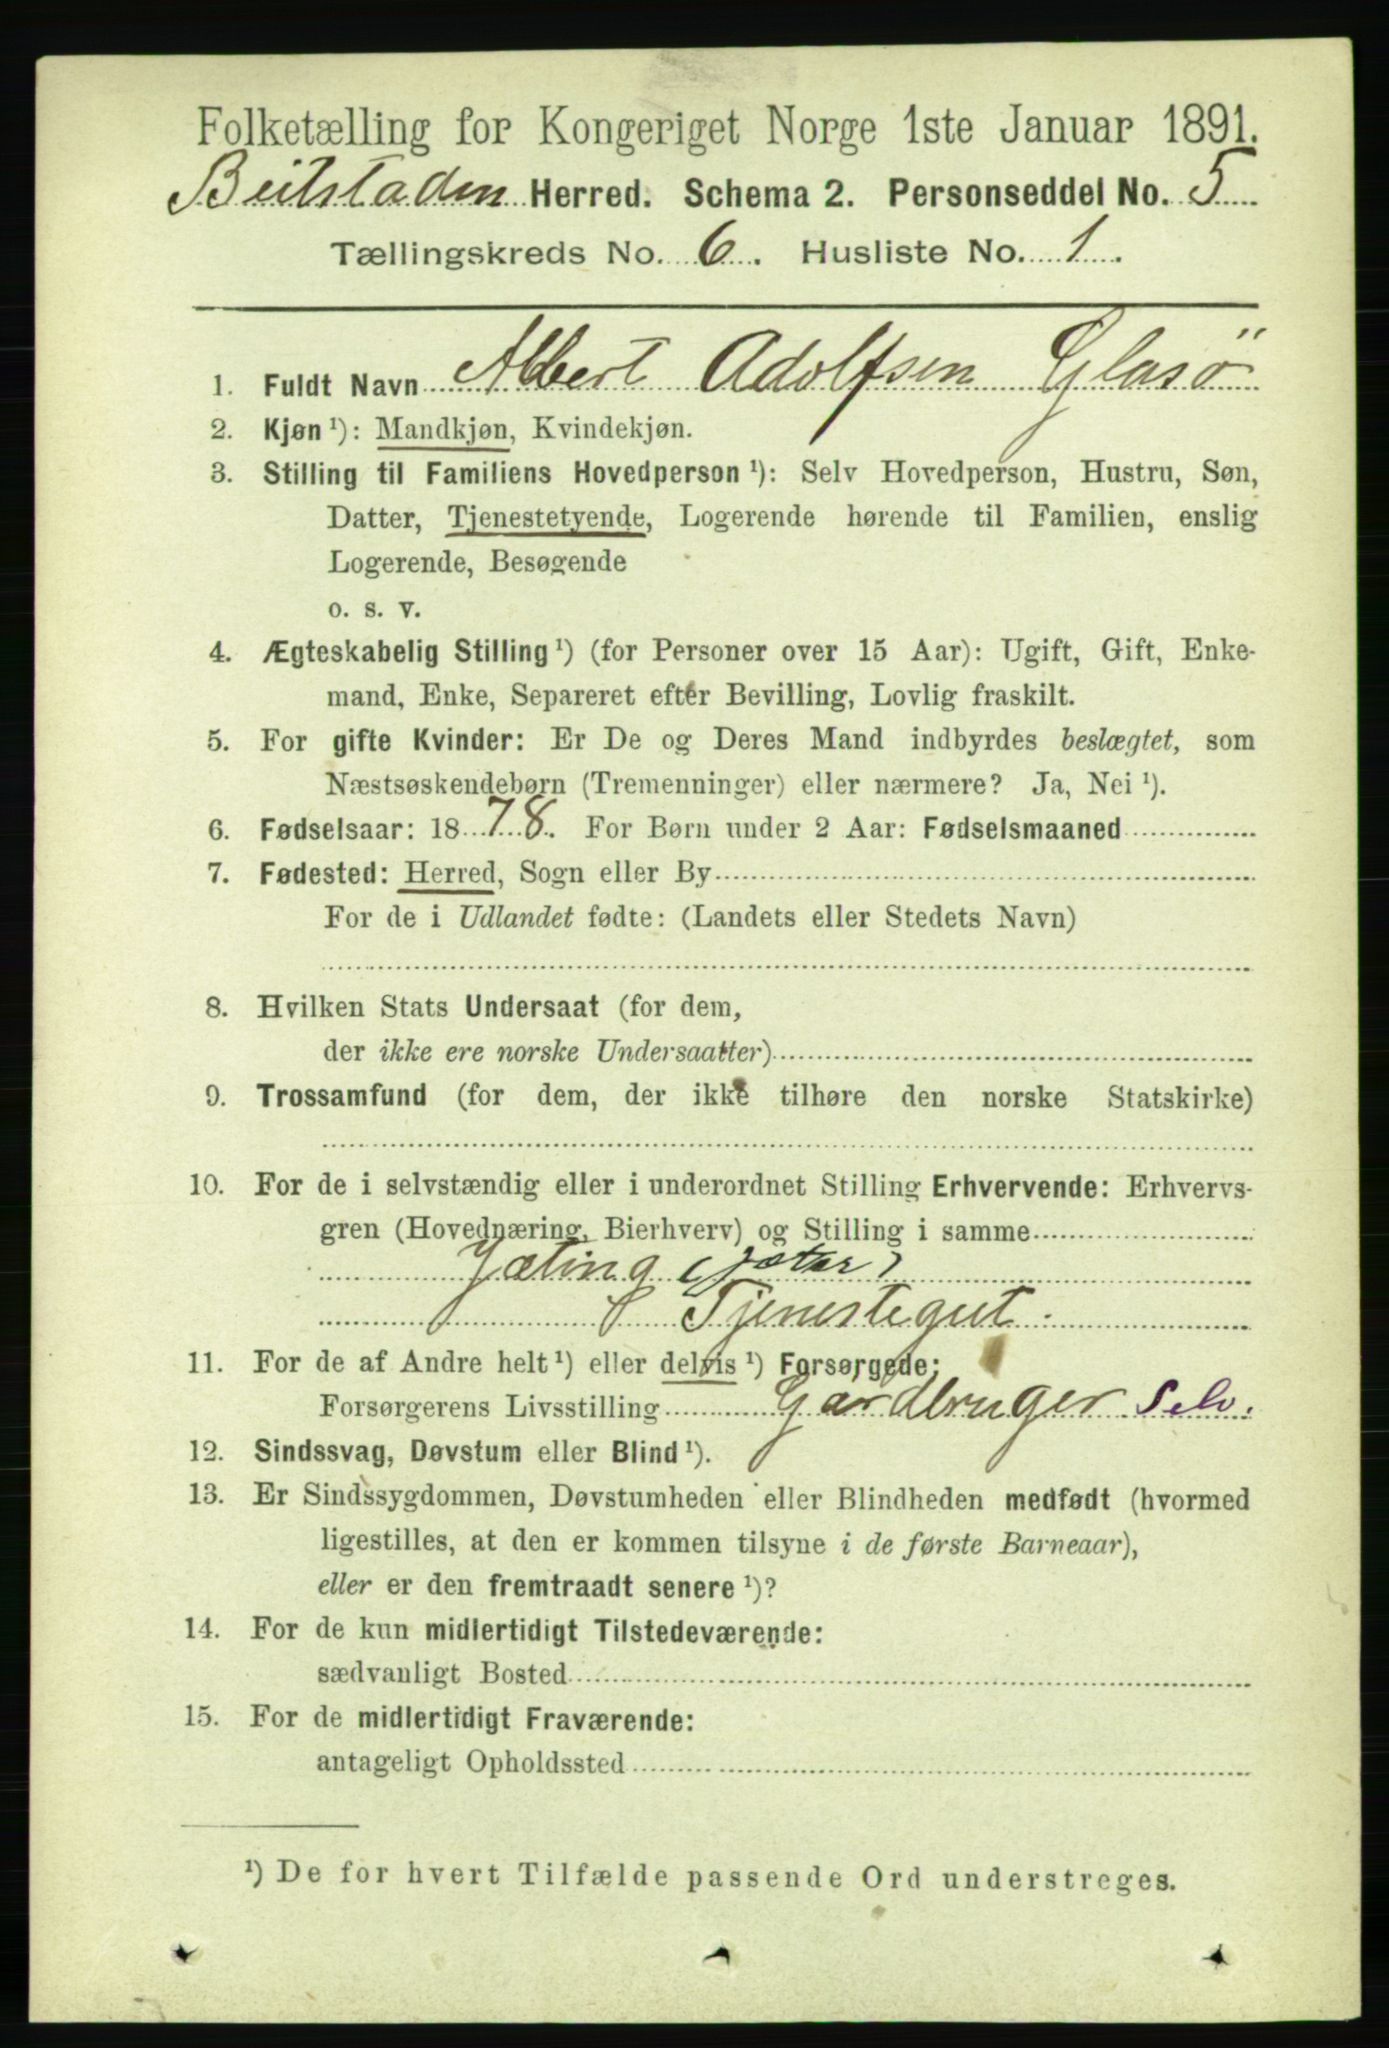 Folketælling for Kongeriget Norge 1ste Januar 1891.
Beitstaden Herred. Schema 2. Personseddel No. 5
Tællingskreds No. 6. Husliste No. 1.
1. Fuldt Navn Albert Adolfsen Glasö
2. Kjøn ¹): Mandkjøn, Kvindekjøn.
3. Stilling til Familiens Hovedperson ¹): Selv Hovedperson, Hustru, Søn,
Datter, Tjenestetyende, Logerende hørende til Familien, enslig
Logerende, Besøgende
o. s. v.
4. Ægteskabelig Stilling ¹) (for Personer over 15 Aar): Ugift, Gift, Enke-
mand, Enke, Separeret efter Bevilling, Lovlig fraskilt.
5. For gifte Kvinder: Er De og Deres Mand indbyrdes beslægtet, som
Næstsøskendebørn (Tremenninger) eller nærmere? Ja, Nei ¹).
6. Fødselsaar: 1878. For Børn under 2 Aar: Fødselsmaaned
7. Fødested: Herred, Sogn eller By
For de i Udlandet fødte: (Landets eller Stedets Navn)
8. Hvilken Stats Undersaat (for dem,
der ikke ere norske Undersaatter)
9. Trossamfund (for dem, der ikke tilhøre den norske Statskirke)
10. For de i selvstændig eller i underordnet Stilling Erhvervende: Erhvervs-
gren (Hovednæring, Bierhverv) og Stilling i samme
Jæting (jæter)
Tjenestegut.
11. For de af Andre helt ¹) eller delvis ¹) Forsørgede:
Forsørgerens Livsstilling Gardbruger Selv.
12. Sindssvag, Døvstum eller Blind ¹).
13. Er Sindssygdommen, Døvstumheden eller Blindheden medfødt (hvormed
ligestilles, at den er kommen tilsyne i de første Barneaar),
eller er den fremtraadt senere ¹)?
14. For de kun midlertidigt Tilstedeværende:
sædvanligt Bosted
15. For de midlertidigt Fraværende:
antageligt Opholdssted
¹) De for hvert Tilfælde passende Ord understreges.